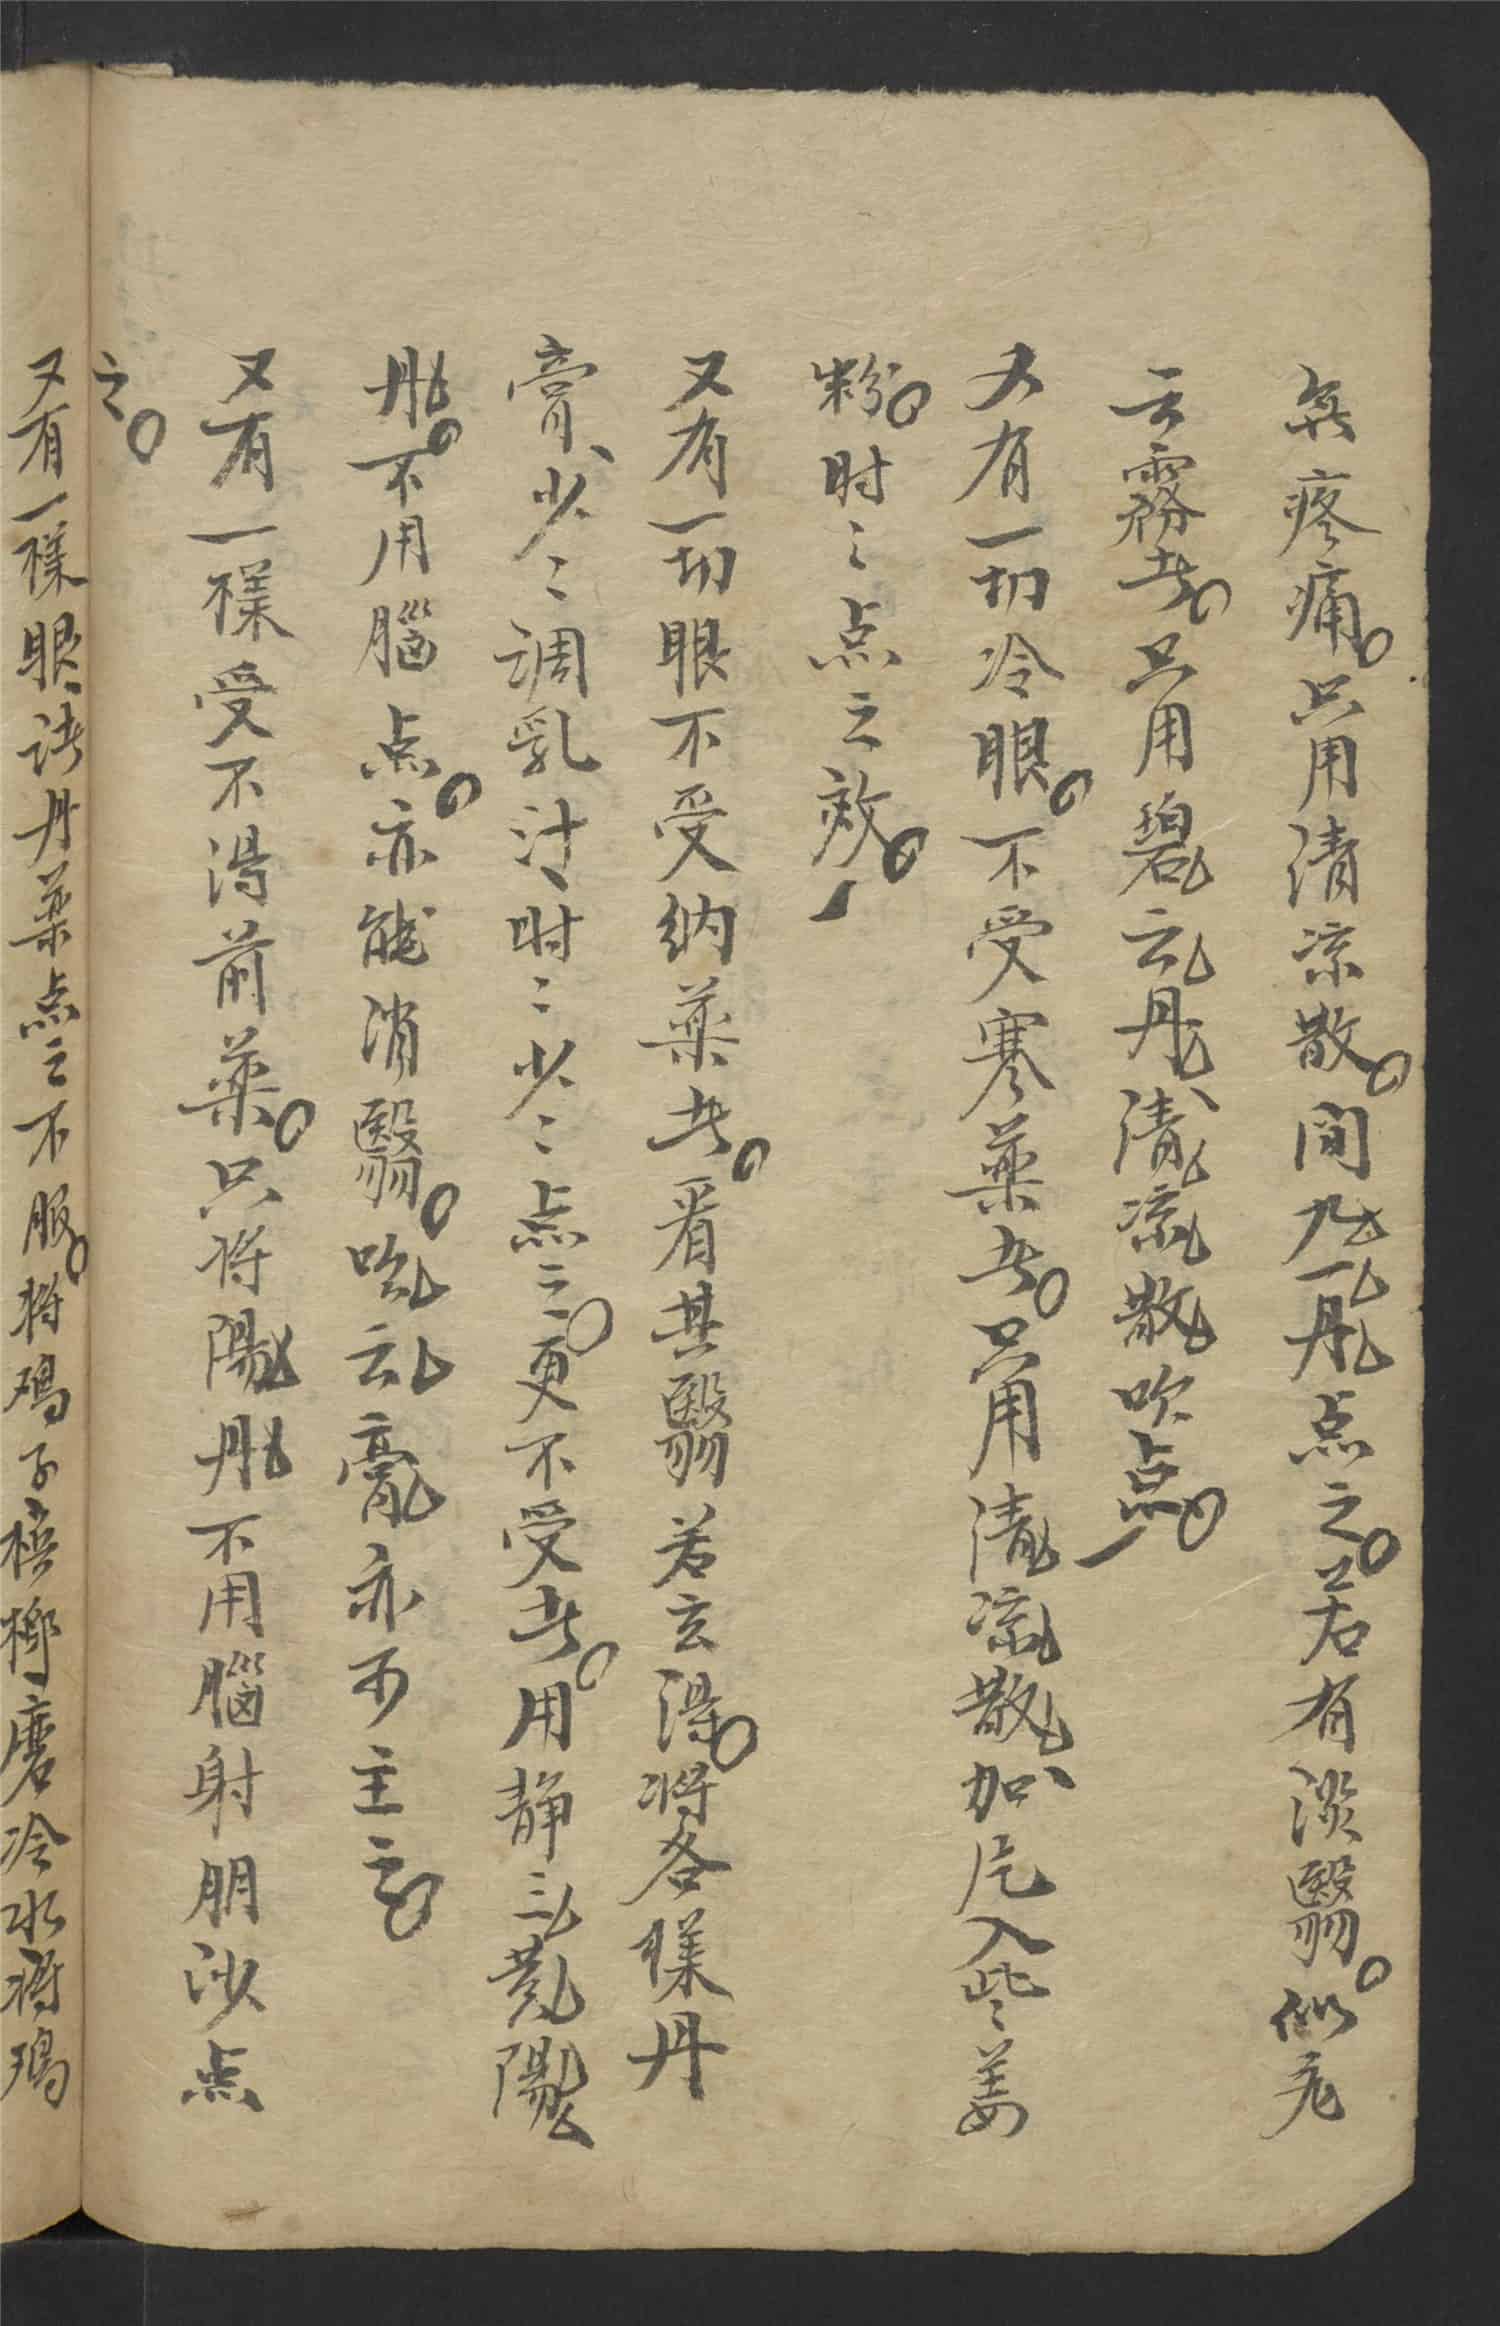 無疼痛。只用清凉散。间九一丹点之。若有淡翳。似无
云霧者。只用碧云丹、清凉散吹点。
又有一切冷眼。不受寒藥者。只用清凉散、加片入些々姜
粉。时々点之效。
又有一切眼不受纳藥者。看其翳若去得。将各樣丹
膏、少々調乳汁、时々少々点之。更不受者。用静三黄陽
丹。不用腦点。亦能消翳。吹云膏亦可主之。
又有一樣受不得前藥。只将陽丹不用腦射朋沙点
之。
又有一樣眼諸丹藥点之不服。将鸡子梹榔磨冷水将鸡